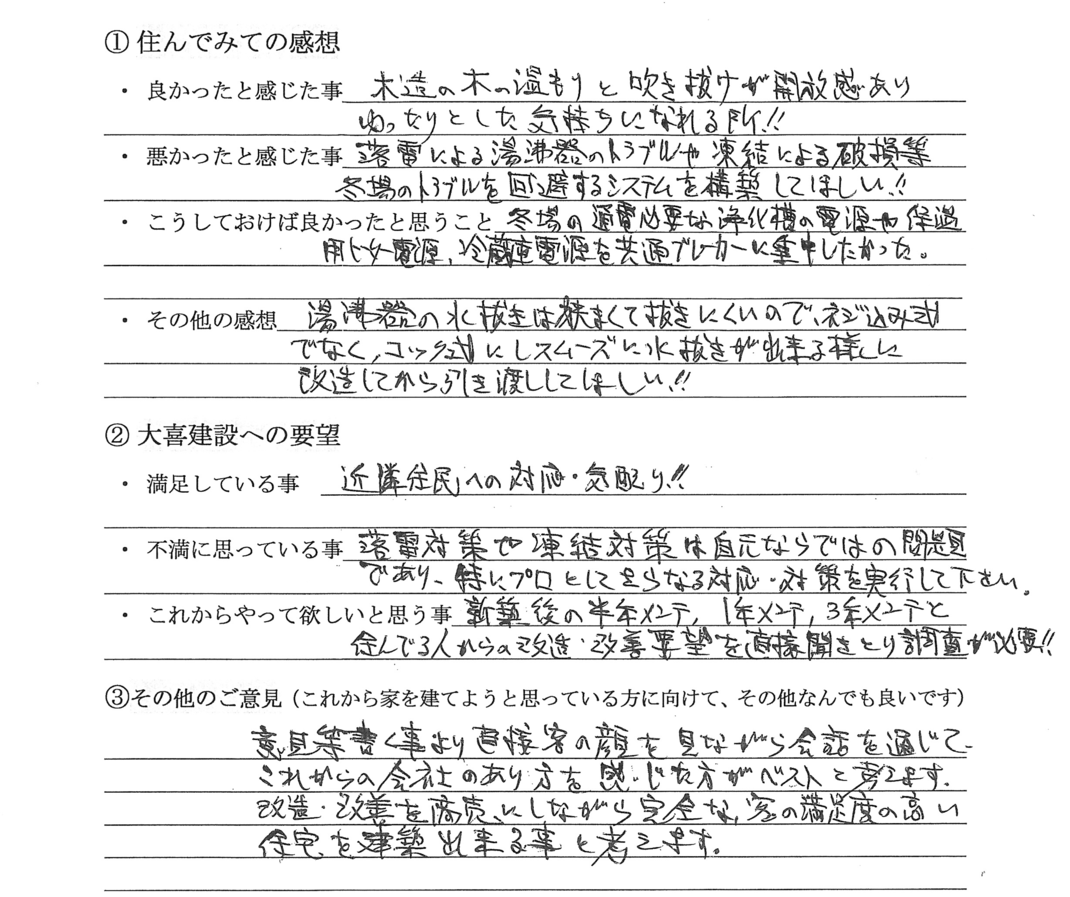 ① 住んでみての感想
・ 良かったと感じた事 木造の木の温もりと吹き抜けが開放感あり
ゆったりとした気持ちになれる所!!
・ 悪かったと感じた事 落雷による湯沸器のトラブルや凍結による破損等
冬場のトラブルを回避するシステムを構築してほしい!!
・ こうしておけば良かったと思うこと 冬場の通電必要な浄化槽の電源や保温
用ヒーター電源、冷蔵庫電源を共通ブレーカーに集中したかった。
・ その他の感想 湯沸器の水抜きは狭まくて抜きにくいので、ネジ込み式
でなく、コック式にしスムーズに水抜きが出来る様に
改造してから引き渡ししてほしい!!
② 大喜建設への要望
・ 満足している事 近隣住民への対応・気配り!!
・ 不満に思っている事 落雷対策や凍結対策は自元ならではの問題
であり、特にプロとして足らなる対応・対策を実行して下さい。
・ これからやって欲しいと思う事 新築後の半年メンテ, 1年メンテ, 3年メンテと
住んでる人からの改造・改善要望を直接聞きとり調査が必要!!
③その他のご意見（これから家を建てようと思っている方に向けて、その他なんでも良いです）
意見等書く事より直接客の顔を見ながら会話を通じて
これからの会社のあり方を感じた方がベストと考えます。
改造・改善を商売にしながら完全な、客の満足度の高い
住宅を建築出来る事と考えます。